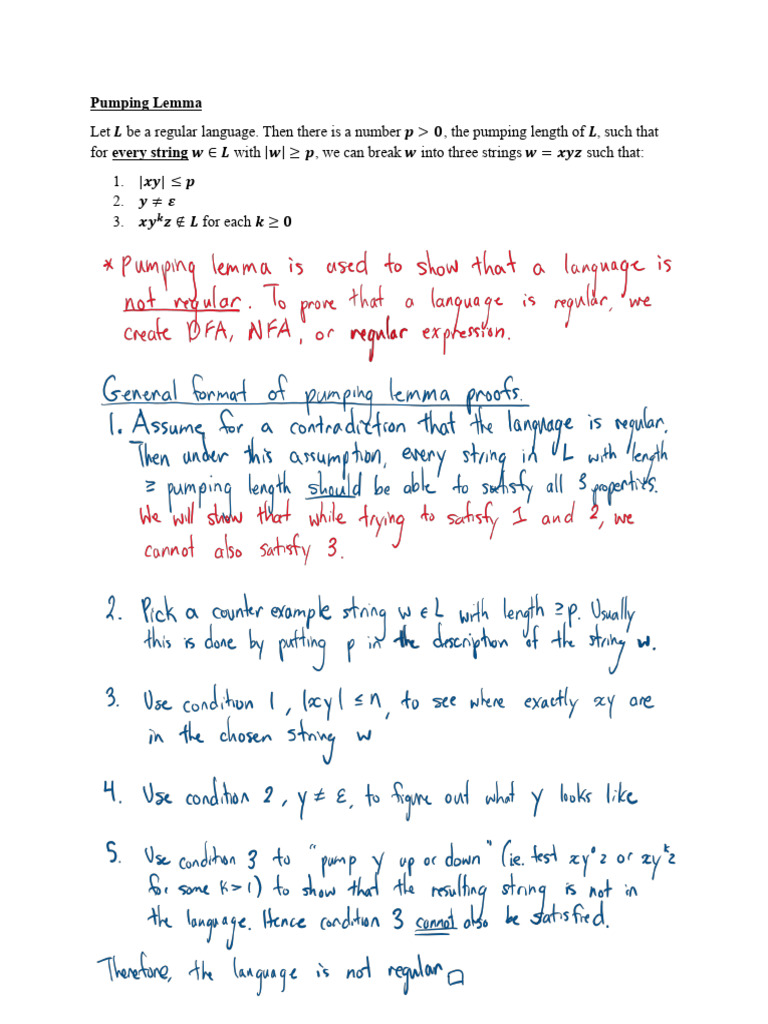 Pumping Lemma
Let L be a regular language. Then there is a number p > 0, the pumping length of L, such that
for every string w ∈ L with |w| ≥ p, we can break w into three strings w = xyz such that:
1. |xy| ≤ p
2. y ≠ ε
3. xyᵏz ∉ L for each k ≥ 0
* Pumping lemma is used to show that a language is
not regular. To prove that a language is regular, we
create DFA, NFA, or regular expression.
General format of pumping lemma proofs.
1. Assume for a contradiction that the language is regular.
Then under this assumption, every string in L with length
≥ pumping length should be able to satisfy all 3 properties.
We will show that while trying to satisfy 1 and 2, we
cannot also satisfy 3.
2. Pick a counter example string w ∈ L with length ≥ p. Usually
this is done by putting p in the description of the string w.
3. Use condition 1, |xy| ≤ n, to see where exactly xy are
in the chosen string w
4. Use condition 2, y ≠ ε, to figure out what y looks like
5. Use condition 3 to "pump y up or down" (ie. test xy⁰z or xyᵏz
for some k>1) to show that the resulting string is not in
the language. Hence condition 3 cannot also be satisfied.
Therefore, the language is not regular □